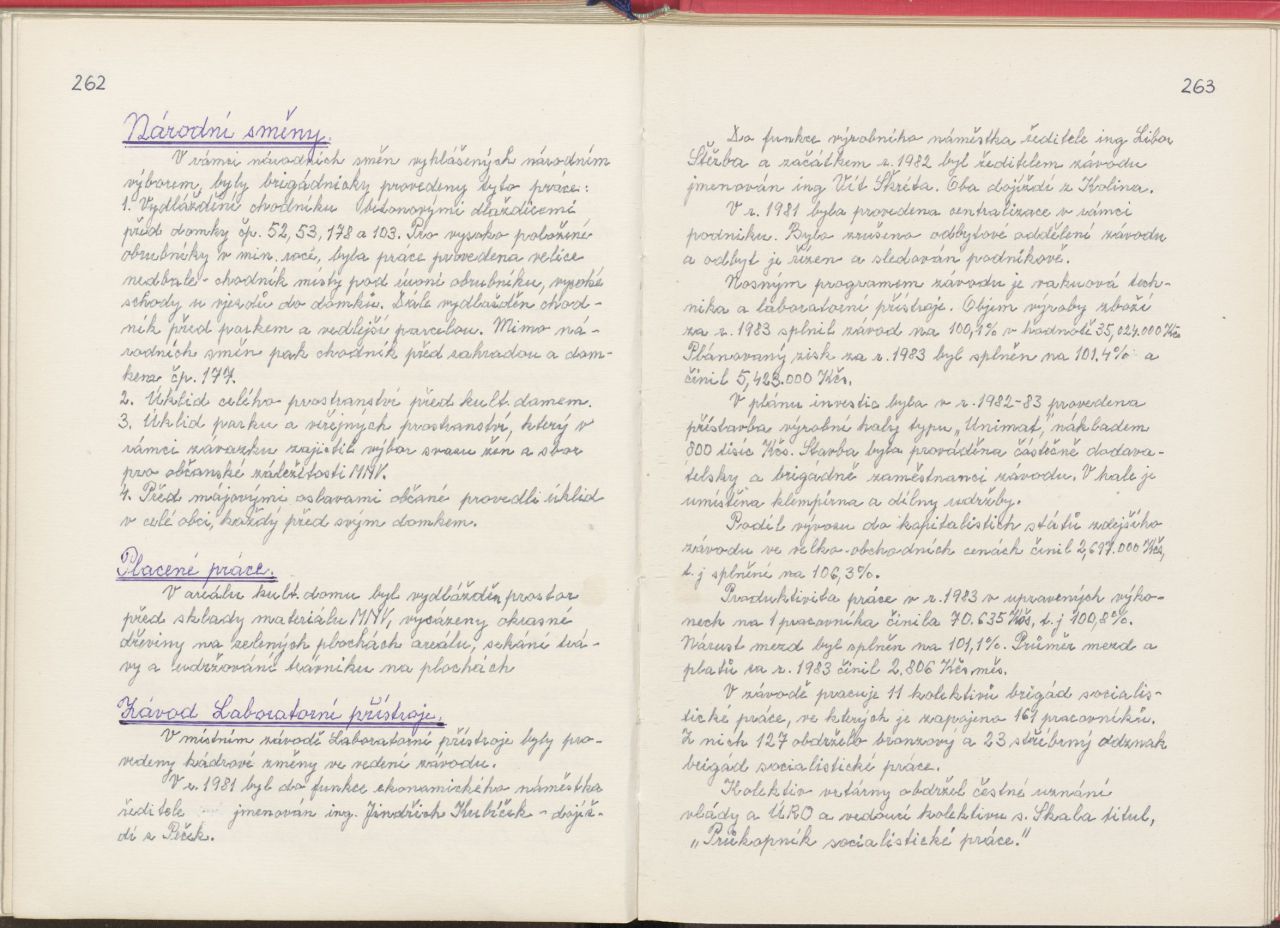 262
Národní směny.
V rámci národních směn vyhlášených národním
výborem, byly brigádnicky provedeny tyto práce:
1. Vydláždění chodníku betonovými dlaždicemi
před domky čp. 52, 53, 178 a 103. Pro vysoko položené
obrubníky v min. roce, byla práce provedena velice
nedbale - chodník místy pod úrovní obrubníku, vysoké
schody u vjezdů do domků. Dále vydlážděn chod-
ník před parkem a vedlejší parcelou. Mimo ná-
rodních směn pak chodník před zahradou a dom-
kem čp. 177.
2. Úklid celého prostranství před kult. domem.
3. Úklid parku a veřejných prostranství, který v
rámci závazku zajistil výbor svazu žen a sbor
pro občanské záležitosti MNV.
4. Před májovými oslavami občané provedli úklid
v celé obci, každý před svým domkem.
Placené práce.
V areálu kult. domu byl vydlážděn prostor
před sklady materiálu MNV, vysázeny okrasné
dřeviny na zelených plochách areálu, sekání trá-
vy a udržování trávníku na plochách
Závod Laboratorní přístroje.
V místním závodě Laboratorní přístroje byly pro-
vedeny kádrové změny ve vedení závodu.
V r. 1981 byl do funkce ekonomického náměstka
ředitele jmenován ing. Jindřich Kubíček - dojíž-
dí z Peček.
263
Do funkce výrobního náměstka ředitele ing. Libor
Štěrba a začátkem r. 1982 byl ředitelem závodu
jmenován ing Vít Škréta. Oba dojíždí z Kolína.
V r. 1981 byla provedena centralizace v rámci
podniku. Bylo zrušeno odbytové oddělení závodu
a odbyt je řízen a sledován podnikově.
Nosným programem závodu je vakuová tech-
nika a laboratorní přístroje. Objem výroby zboží
za r. 1983 splnil závod na 100,1% v hodnotě 35,024.000 Kčs
Plánovaný zisk za r. 1983 byl splněn na 101.4% a
činil 5,423.000 Kčs.
V plánu investic byla v r. 1982-83 provedena
přístavba výrobní haly typu „Unimat", nákladem
800 tisíc Kčs. Stavba byla prováděna částečně dodava-
telsky a brigádně zaměstnanci závodu. V hale je
umístěna klempírna a dílny údržby.
Podíl vývozu do kapitalistich států zdejšího
závodu ve velko-obchodních cenách činil 2,697.000 Kčs,
t. j splnění na 106,3%.
Produktivita práce v r. 1983 v upravených výko-
nech na 1 pracovníka činila 70.635 Kčs, t. j 100,8%.
Nárust mezd byl splněn na 101,1%. Průměr mezd a
platů za r. 1983 činil 2.806 Kčs měs.
V závodě pracuje 11 kolektivů brigád socialis-
tické práce, ve kterých je zapojeno 161 pracovníků.
Z nich 127 obdrželo bronzový a 23 stříbrný odznak
brigád socialistické práce.
Kolektiv vrtárny obdržel čestné uznání
vlády a ÚRO a vedoucí kolektivu s. Skala titul,
„Průkopník socialistické práce."